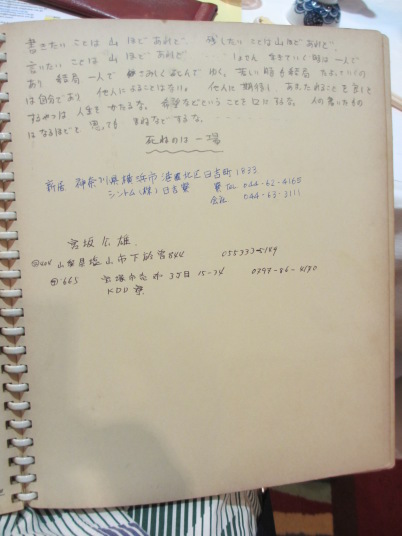 書きたいことは山ほどあれど、残したいことは山ほどあれど、
言いたいことは山ほどあれど、 しょせん 生きていく時は一人で
あり 結局一人で 淋しく死んでゆく。苦い時も結局
は自分であり 他人によることはない。 他人に期待し、あまえることを良しと
するやつは 人生をかたるな。希望などということを口にするな。 人の書いたもの
はなるほどと思っても まねなどするな。
死ぬのは一場
新居 神奈川県横浜市港北区日吉町1833
シントム(株)日吉寮 寮TEL 044-62-4165
会社 044-63-3111
宮坂広雄
〒404 山梨県塩山市下於曽844 05533-3-5189
〒665 宝塚市 3丁目15-34 0797-86-4170
KDD寮